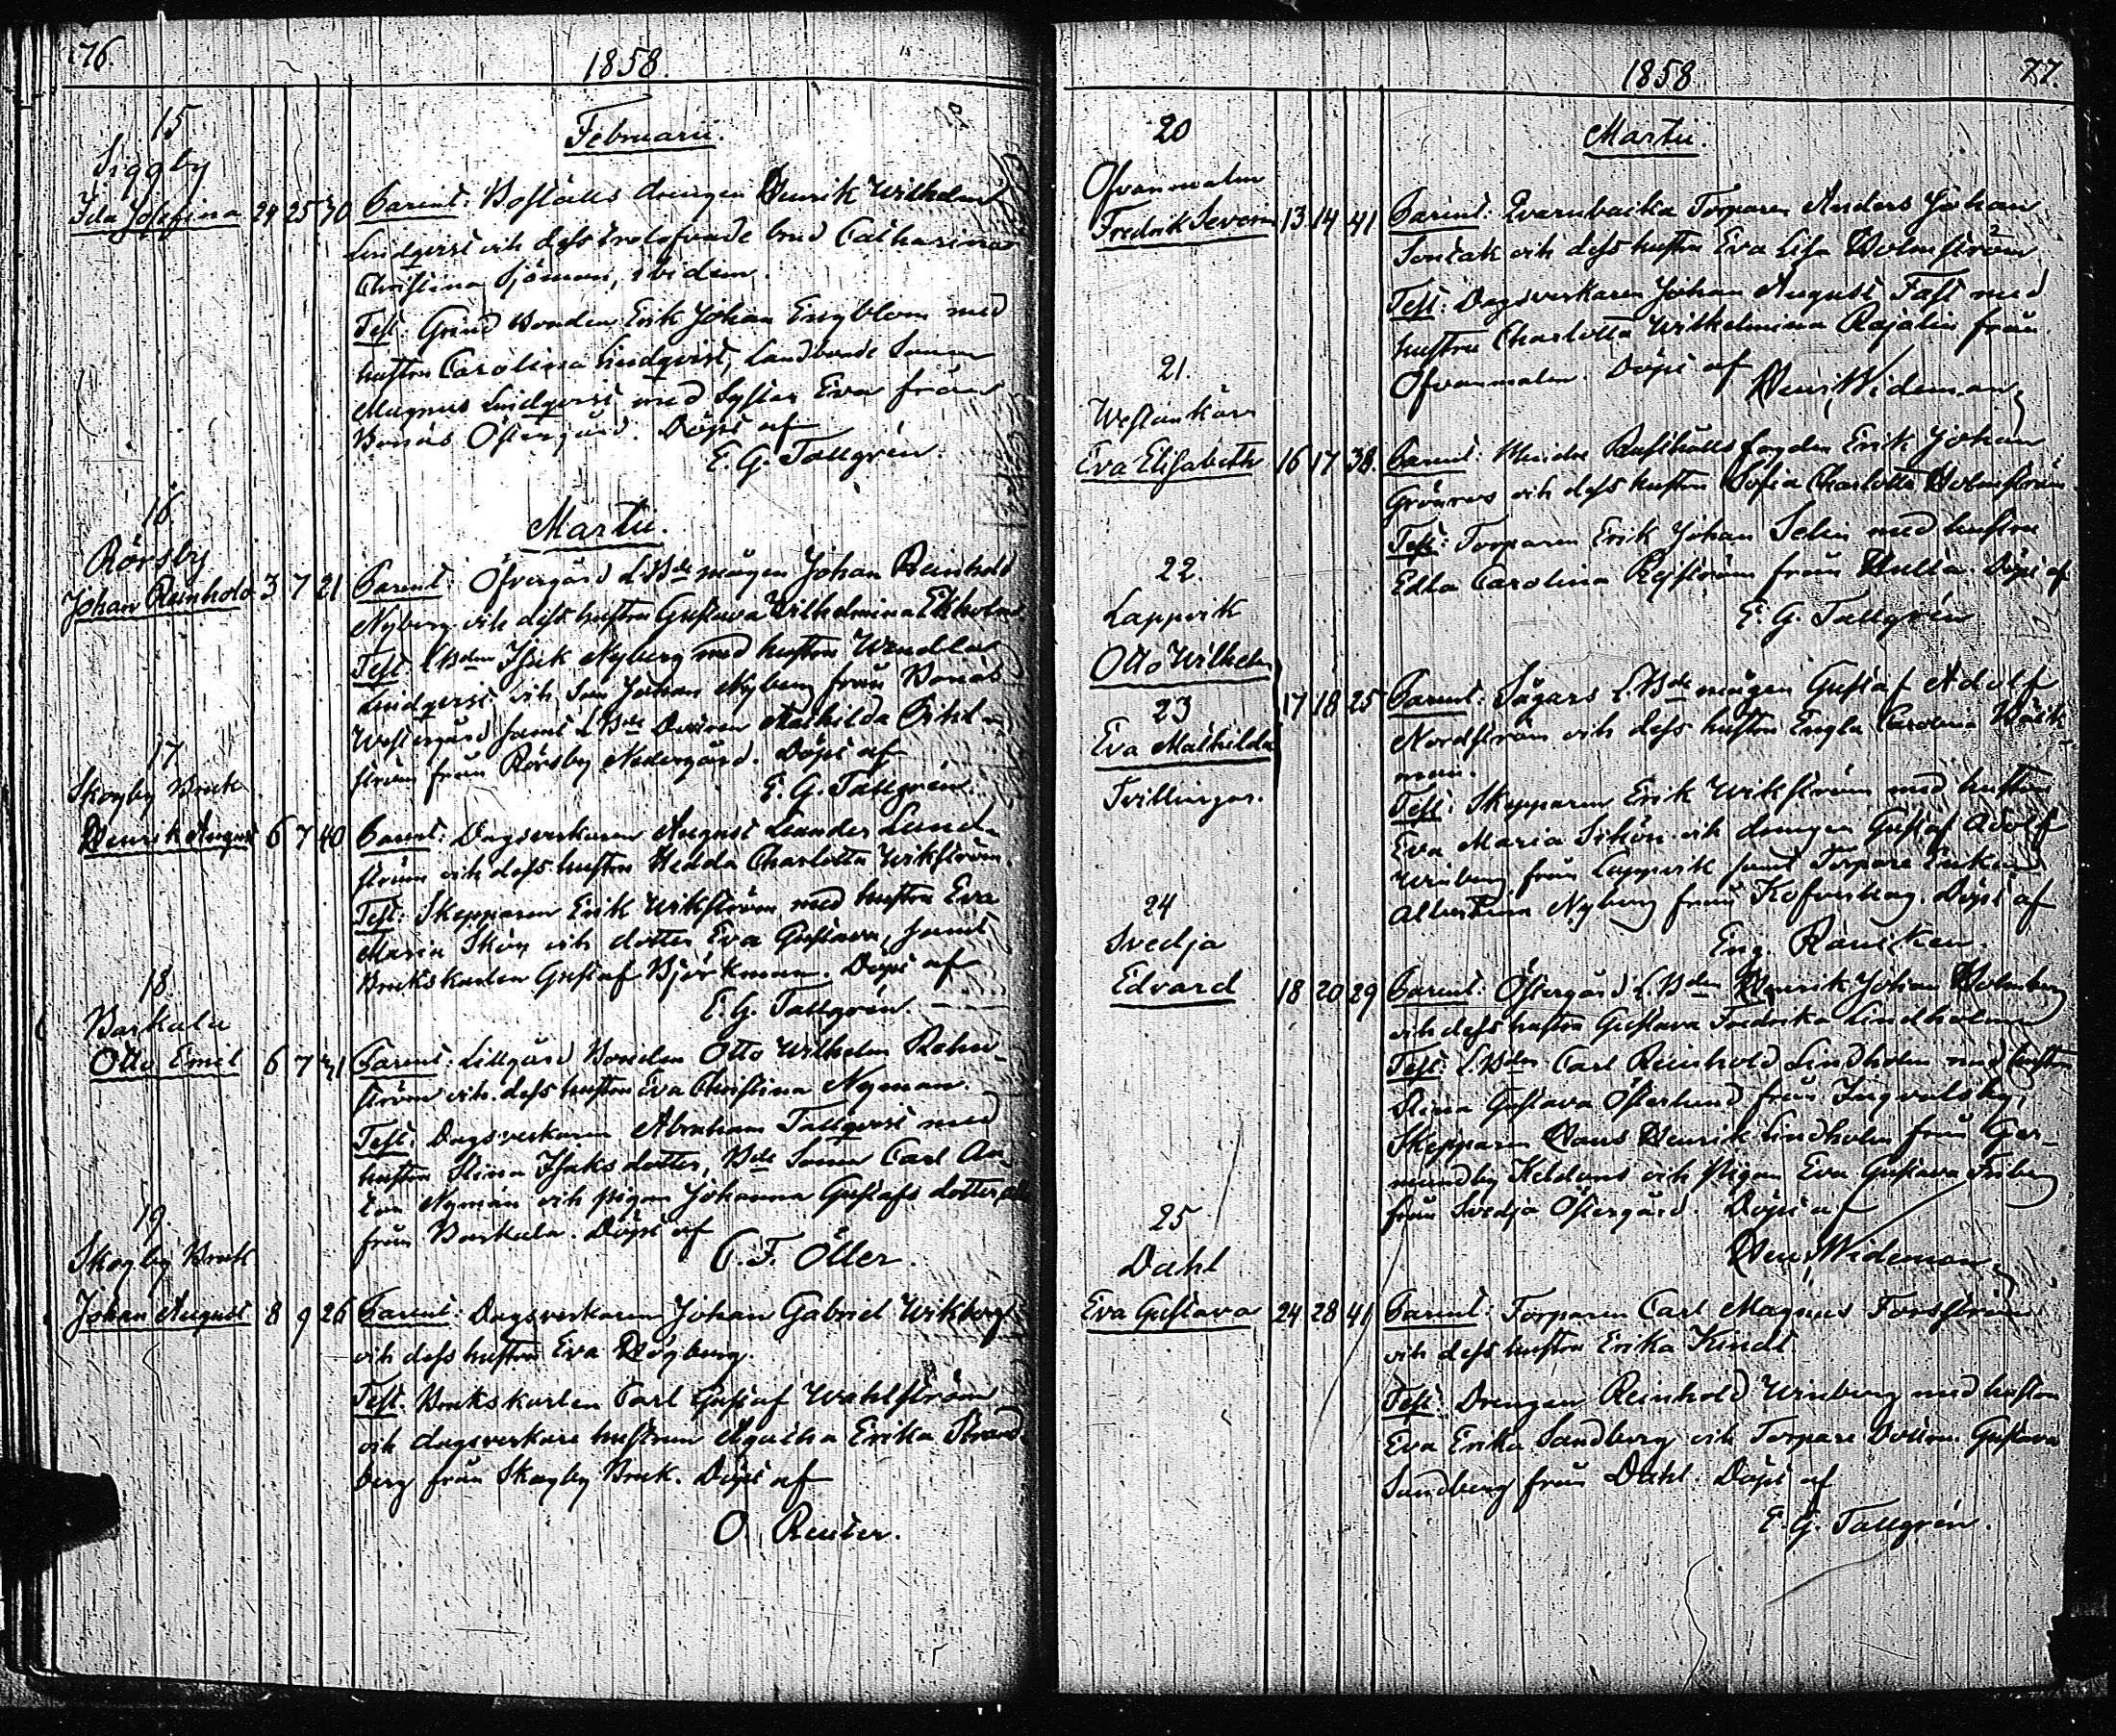 76.
1858.
Februarii.
15
Siggby
Ida Josefina 24 25 30 Parent: Boställs drengen Henrik Wilhelm
Lindqvist och dess trolofvade brud Catharina
Christina Sjöman, ibidem.
Test: Grind Bonden Erik Johan Engblom med
hustru Carolina Lindqvist, Landbonde Sonen
Magnus Lindqvist med Syster Eva från
Bonäs Östergård. Döpt af
E. G. Tallgrén.
Martii.
16.
Rörsby
Johan Reinhold 3 7 21 Parent: Öfvergård LBde mågen Johan Reinhold
Nyberg och dess hustru Gustava Wilhelmina Ekholm.
Test: LBden Isak Nyberg med hustru Wendla
Lindqvist och Son Johan Nyberg från Bonäs
Westergård samt LBde Dottren Mathilda
ström från Rörsby Nedergård. Döpt af
E. G. Tallgrén.
17
Skogby Bruk
Henrik August 6 7 40 Parent: Dagsverkaren August Leander Lund-
ström och dess hustru Hedda Charlotta Wikström.
Test: Skepparen Erik Wikström med hustru Eva
Maria Skön och dotter Eva Gustava, samt
Brukskarlen Gustaf Björkman. Döpt af
E. G. Tallgrén.
18
Baskala
Otto Emil 6 7 31 Parent: Lillgård Bonden Otto Wilhelm Rehn-
ström och dess hustru Eva Christina Nyman.
Test: Dagsverkaren Abraham Tallqvist med
hustru Stina Isaks dotter, Bde Sonen Carl An-
ton Nyman och pigan Johanna Gustafs dotter alla
från Baskala. Döpt af
C. F. Öller.
19.
Skogby Bruk
Johan August 8 9 26 Parent: Dagsverkaren Johan Gabriel Wikberg
och dess hustru Eva Högberg.
Test. Brukskarlen Carl Gustaf Wahlström
och dagsverkare hustrun Agatha Erika Strand-
berg från Skogby Bruk. Döpt af
O. Reuter.
1858
77.
Martii.
20
Ofvanmalm
Fredrik Severin 13 14 41 Parent: Qvarnbacka Torparen Anders Johan
Sontak och dess hustru Eva Lisa Holmström
Test: Dagsverkaren Johan August Fast med
hustru Charlotta Wilhelmina Rajalin från
Ofvanmalm. Döpt af
Henr. Wideman
21.
Westankärr
Eva Elisabeth 16 17 38. Parent: Mindre Rusthålls fogden Erik Johan
Grönroos och dess hustru Sofia Charlotta Holmström.
Test: Torparen Erik Johan Selin med hustru
Edla Carolina Rejström från Hulta. Döpt af
E. G. Tallgrén
22.
Lappvik
Otto Wilhelm
23
Eva Mathilda
Tvillingar.
17 18 25 Parent: Sågars L.Bde mågen Gustaf Adolf
Nordström och dess hustru Engla Carolina Bäck-
man.
Test: Skepparen Erik Wikström med hustru
Eva Maria Schön och drengen Gustaf Adolf
Winberg från Lappvik samt Torpare Enkan
Albertina Nyberg från Kofverhag. Döpt af
Eng. Rancken.
24
Svedja
Edvard 18 20 29 Parent: Östergård LBden Henrik Johan Holmberg
och dess hustru Gustava Fredrika Lindholm
Test: LBden Carl Reinhold Lindholm med hustru
Stina Gustava Österlund från Ingvalsby,
Skepparen Hans Henrik Lindholm från Ger-
mundby Keldans och Pigan Eva Gustava Friberg
från Svedja Östergård. Döpt af
Henr. Wideman
25
Dahl
Eva Gustava 24 28 41 Parent: Torparen Carl Magnus Forsström
och dess hustru Erika Kindt.
Test: Drengen Reinhold Winberg med hustru
Eva Erika Sandberg och Torpare Dottren Gustava
Sandberg från Dahl. Döpt af
E. G. Tallgrén.